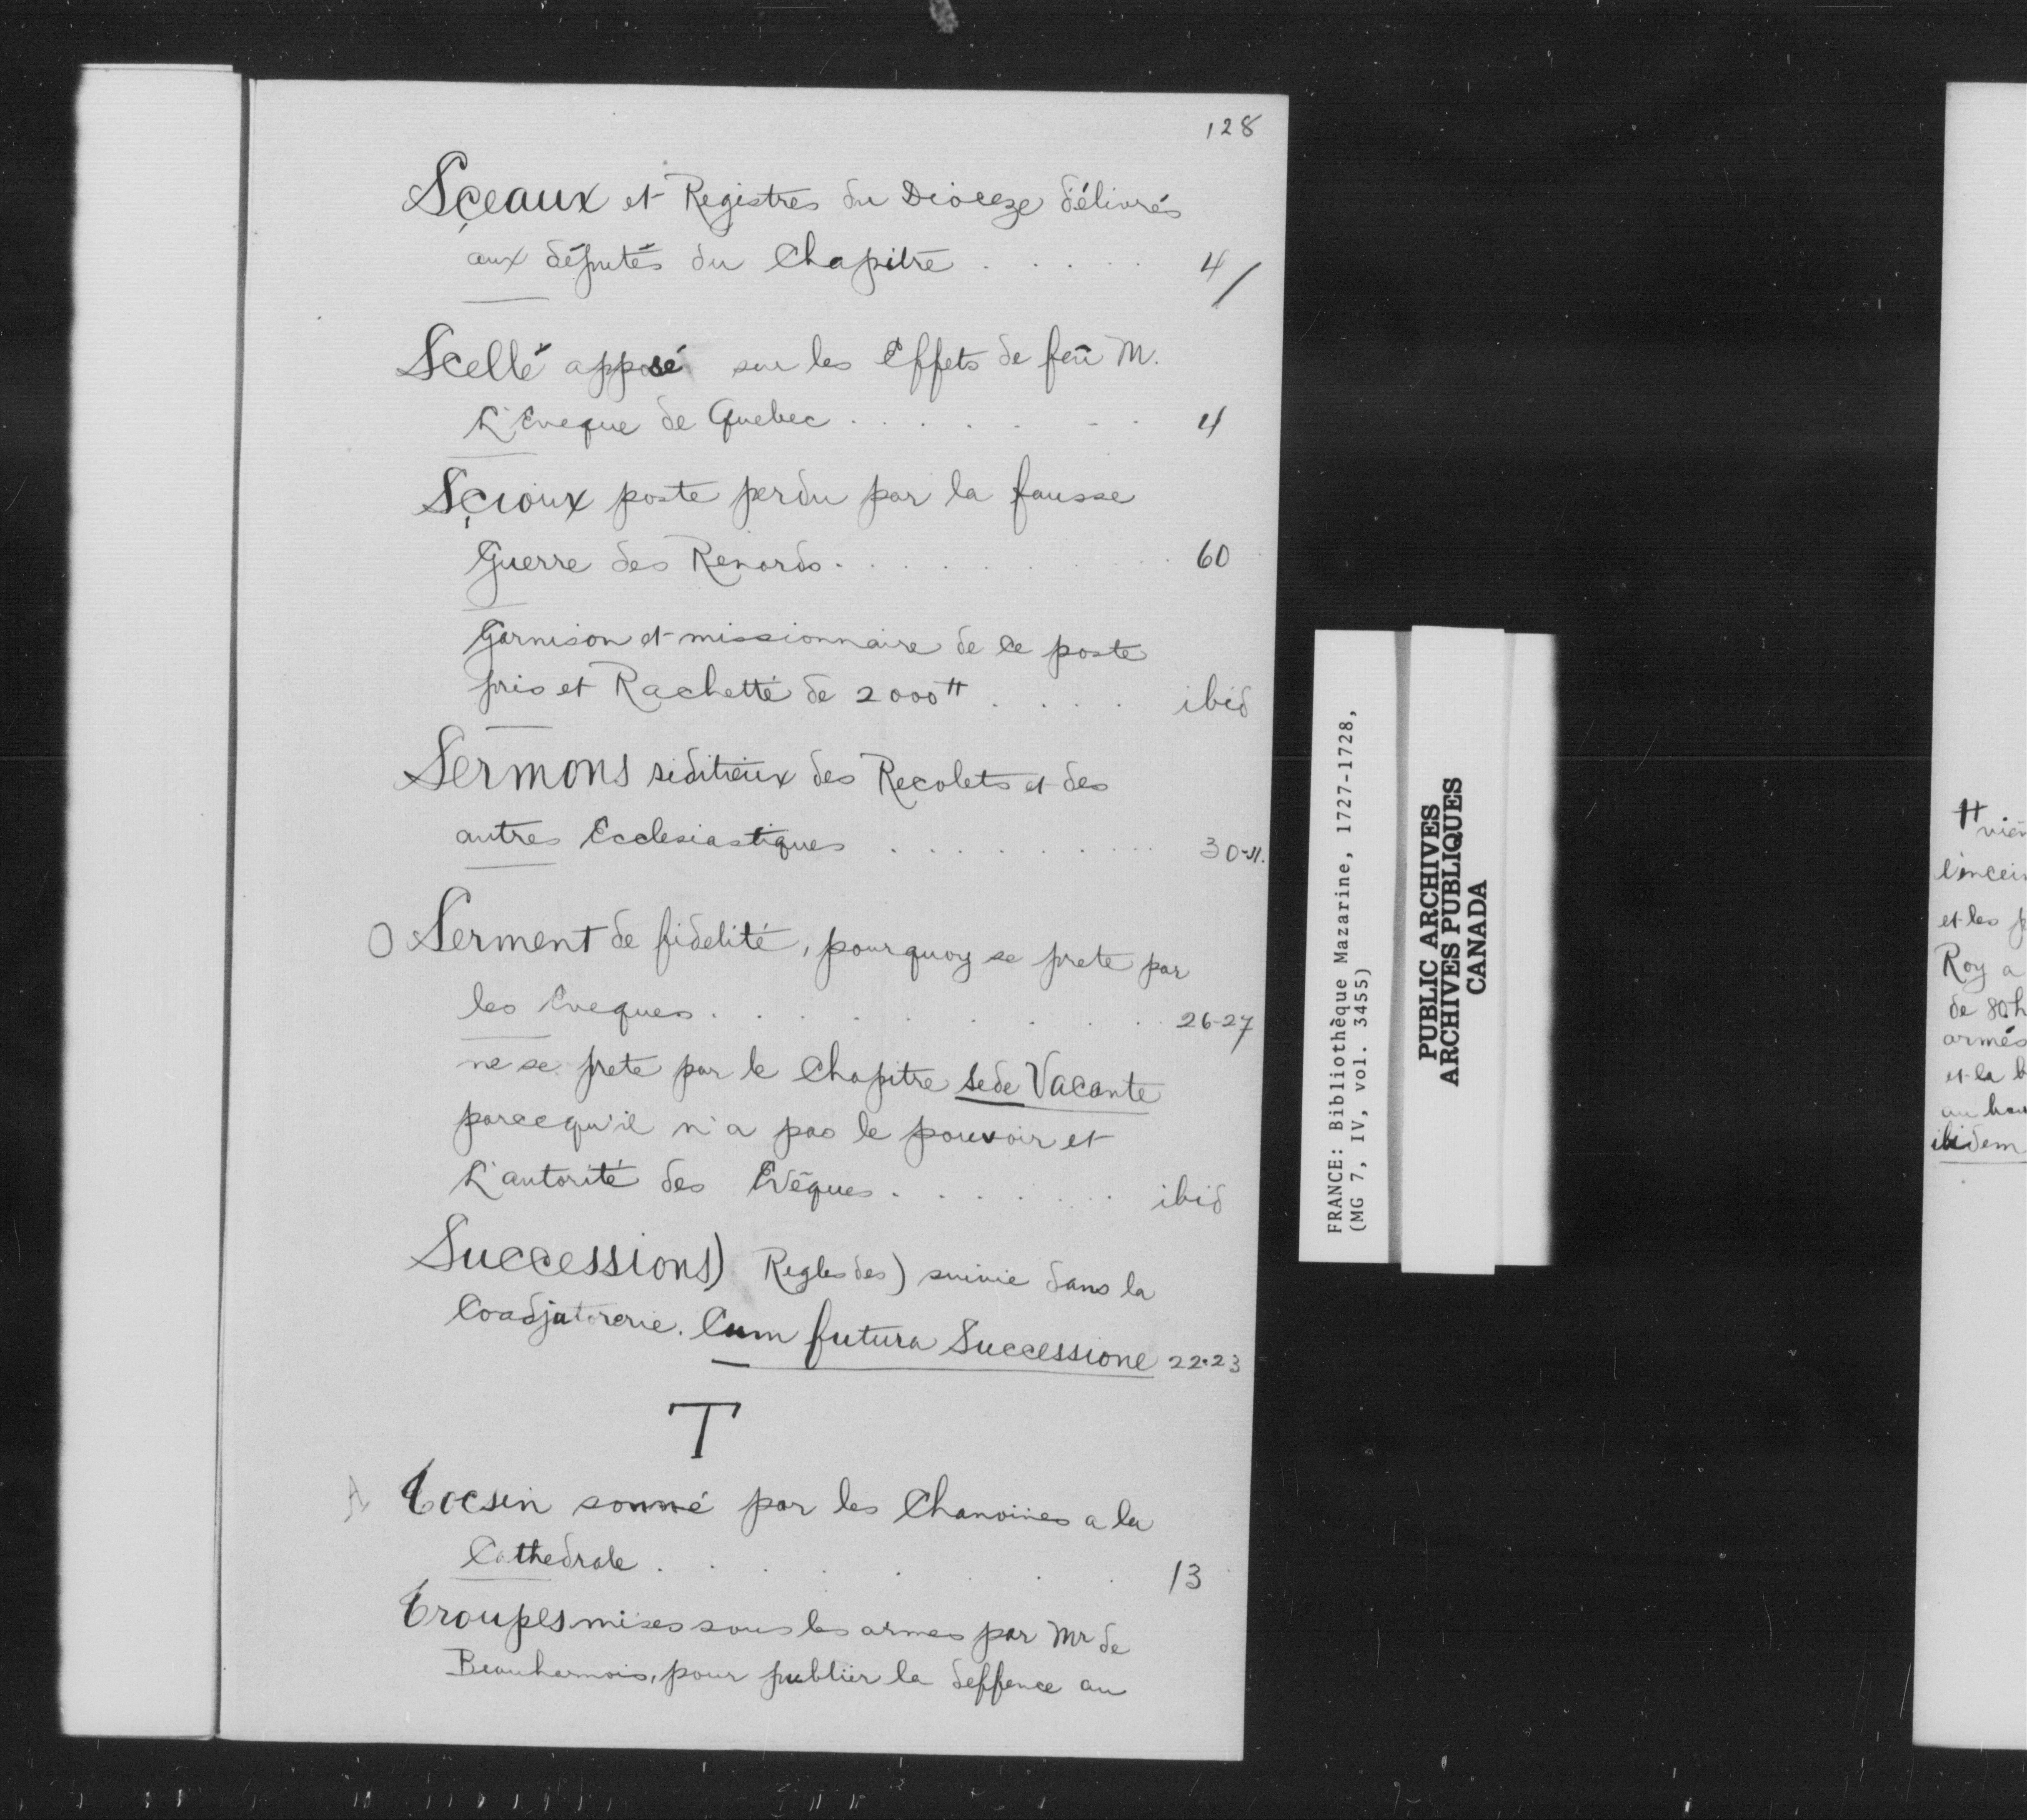 128
Sçeaux et Registres du Dioceze délivrés
aux députés du Chapitre . . . . . 4/
Scellé apposé sur les Effets de feu M.
L'Eveque de Quebec . . . . . . 4
Sçioux poste perdu par la fausse
Guerre des Renards . . . . . . . 60
Garnison et missionnaire de ce poste
pris et Rachetté de 2000# . . . . ibid
Sermons siditieux des Recolets et des
autres Ecclesiastiques . . . . . . . 30-31.
O Serment de fidelité, pourquoy se prete par
les Eveques . . . . . . . . 26-27
ne se prete par le Chapitre sede Vacante
parcequ'il n'a pas le pouvoir et
L'autorité des Evêques . . . . . . ibid
Successions) Regles des) suivie dans la
Coadjutorerie. Cum futura Successione 22.23
T
A Tocsin sonné par les Chanoines a la
Cathedrale . . . . . . . 13
Troupes mises sous les armes par Mr de
Beauharnois, pour publier la deffence au
FRANCE: Bibliothèque Mazarine, 1727-1728,
(MG 7, IV, vol. 3455)
PUBLIC ARCHIVES
ARCHIVES PUBLIQUES
CANADA
et les
Roy a
de 80 h
armés
et la b
au
ibidem